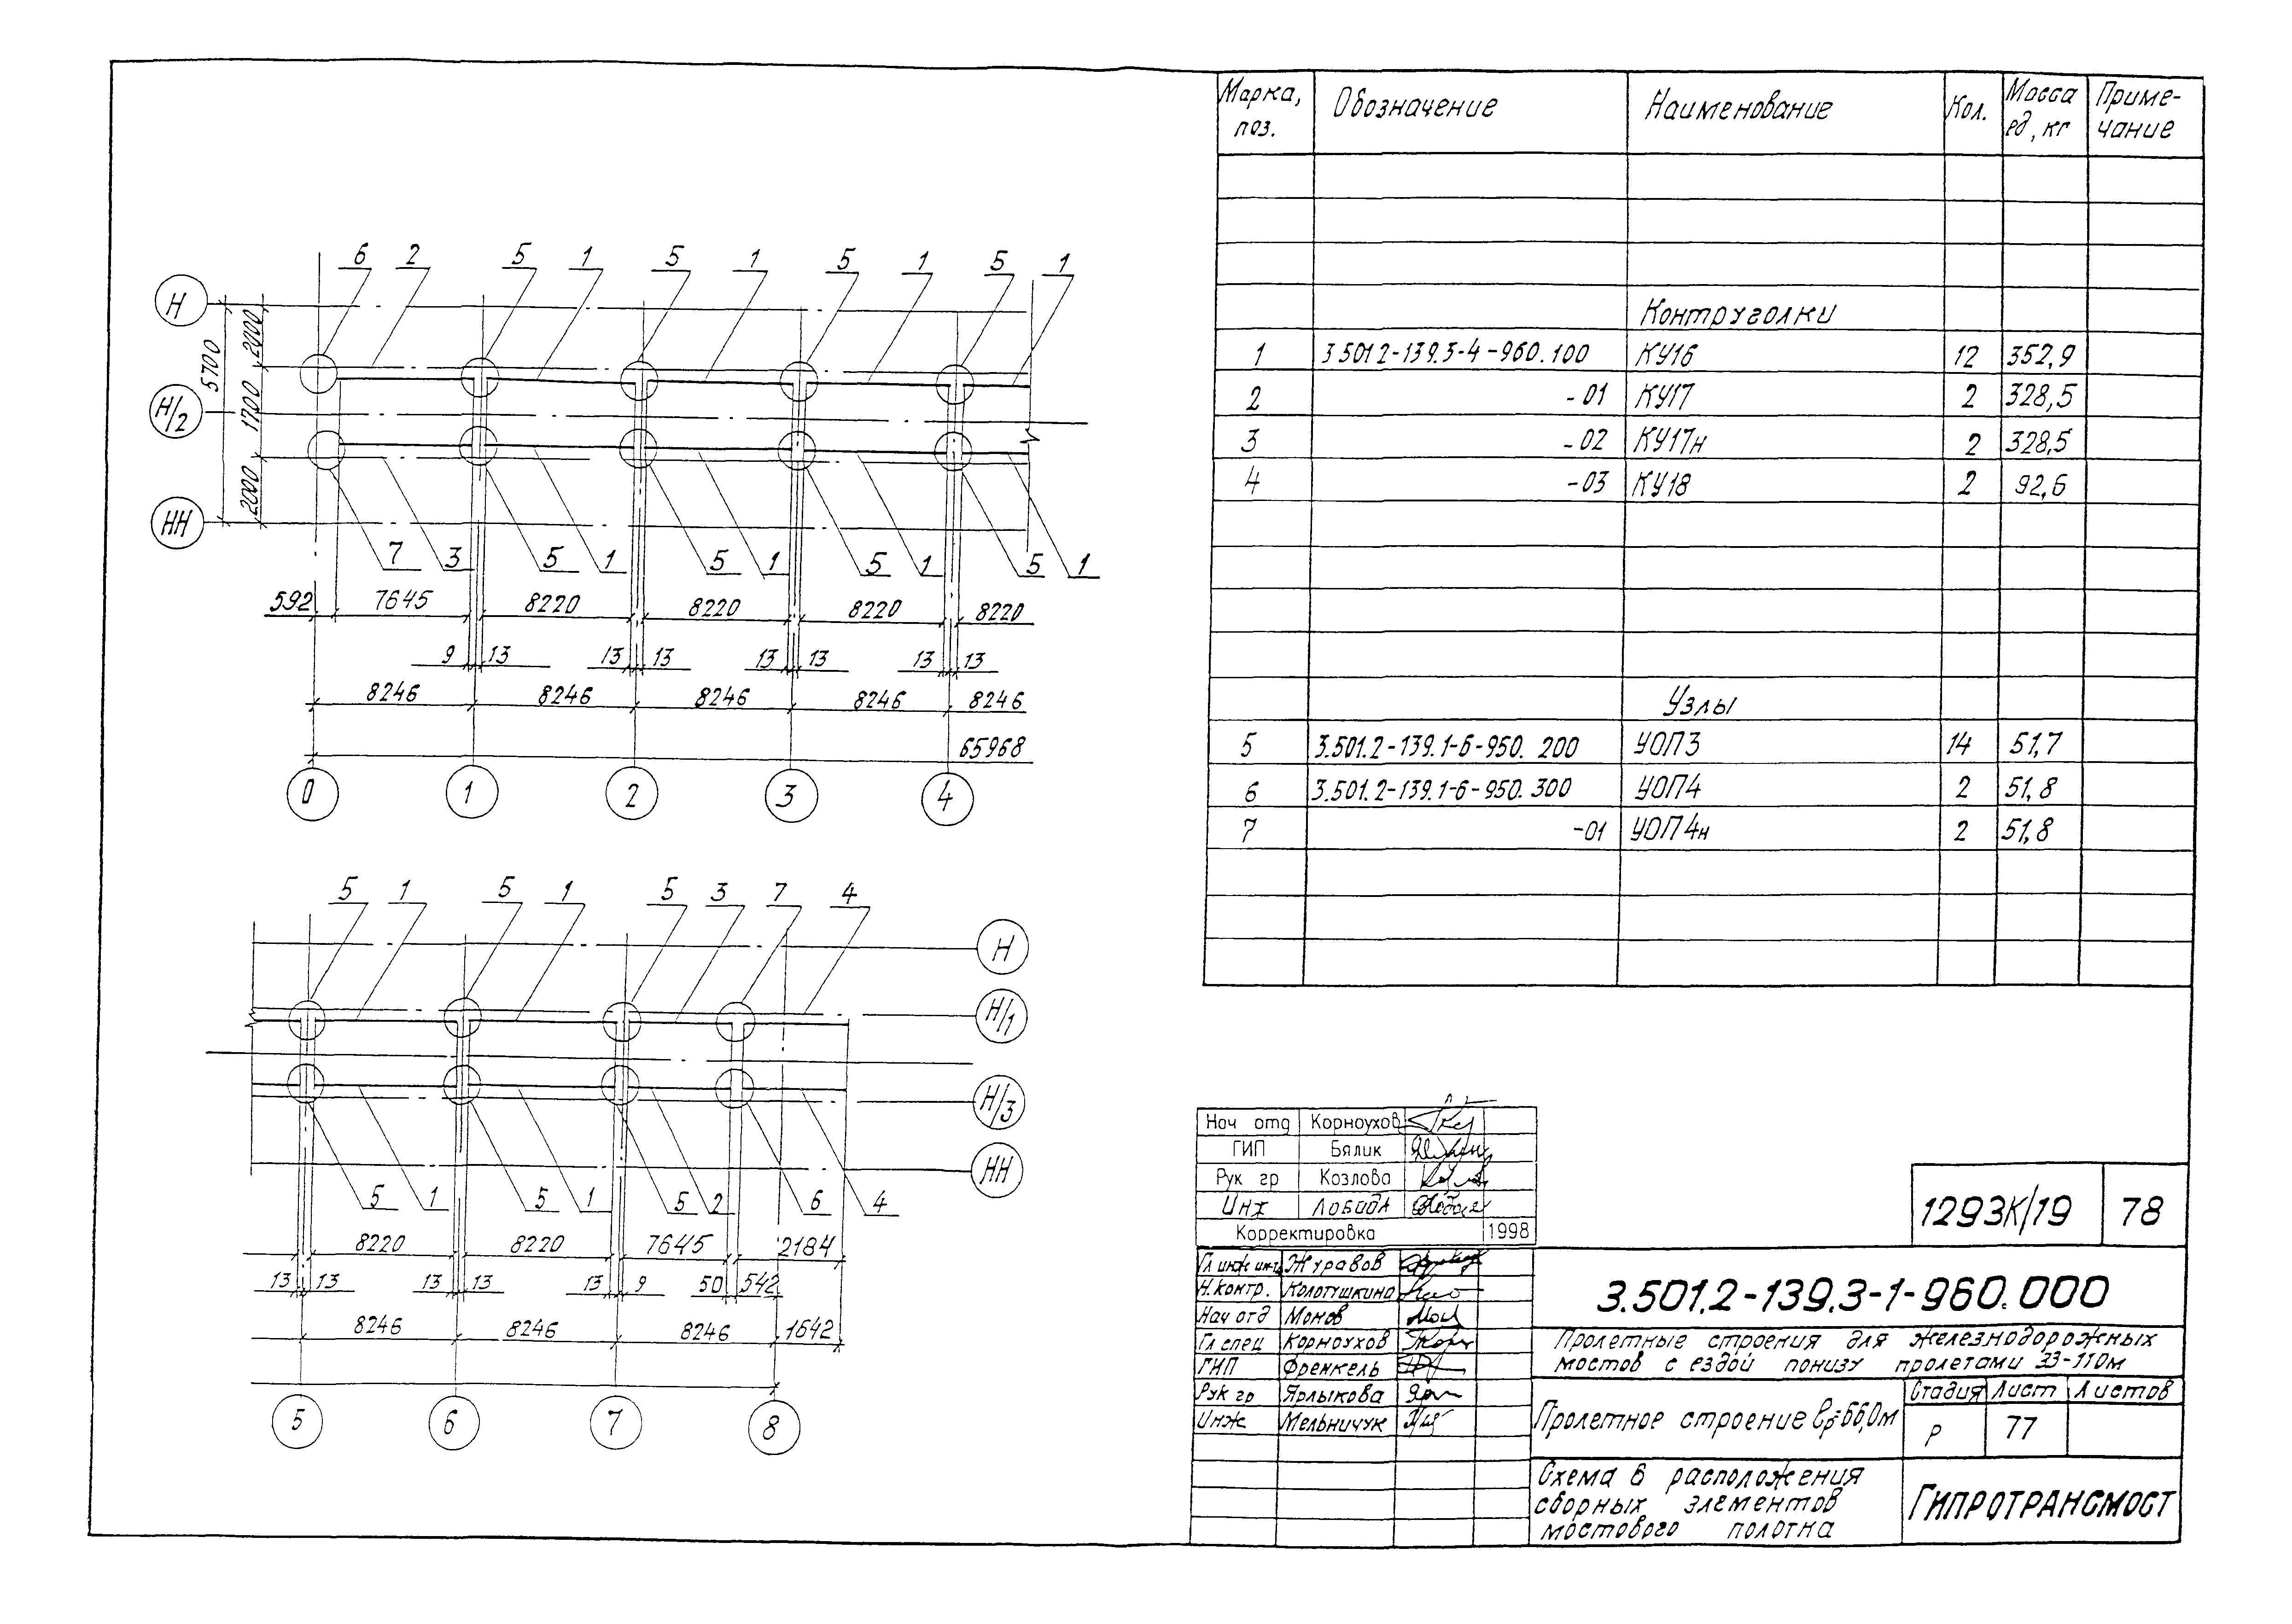 6 2 5 1 5 1 5 1 5 1
Н
Н/2
НН
5700
2000
1700
2000
7 3 5 1 5 1 5 1 5 1
592 7645 8220 8220 8220 8220
9 13 13 13 13 13 13 13
8246 8246 8246 8246 8246
65968
0 1 2 3 4
5 1 5 1 5 3 7 4
Н
Н/1
Н/3
НН
5 1 5 1 5 2 6 4
8220 8220 7645 2184
13 13 13 13 13 9 50 542
8246 8246 8246 1642
5 6 7 8
Марка, поз. Обозначение Наименование Кол. Масса ед, кг Приме-чание
Контруголки
1 3.501.2-139.3-4-960.100 КУ16 12 352,9
2 -01 КУ17 2 328,5
3 -02 КУ17н 2 328,5
4 -03 КУ18 2 92,6
Узлы
5 3.501.2-139.1-6-950. 200 УОП3 14 51,7
6 3.501.2-139.1-6-950. 300 УОП4 2 51,8
7 -01 УОП4н 2 51,8
Нач отд Корноухов
ГИП Бялик
Рук гр Козлова
Инж Лобода
Корректировка 1998
1293К/19 78
Гл инж ин-та Журавов
Н.контр. Колотушкина
Нач отд Монов
Гл спец Корноухов
ГИП Френкель
Рук гр Ярлыкова
Инж Мельничук
3.501.2-139.3-1-960.000
Пролетные строения для железнодорожных
мостов с ездой понизу пролетами 33-110м
Пролетное строение lр=66,0м
Стадия Лист Листов
Р 77
Схема 6 расположения
сборных элементов
мостового полотна
Гипротрансмост